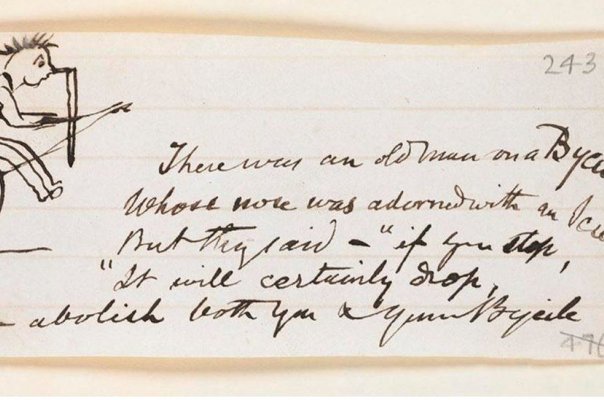 243
There was an old man on a Bycic
Whose nose was adorned with an Icic
But they said – "if you stop,
"It will certainly drop,
– abolish both you & your Bycicle